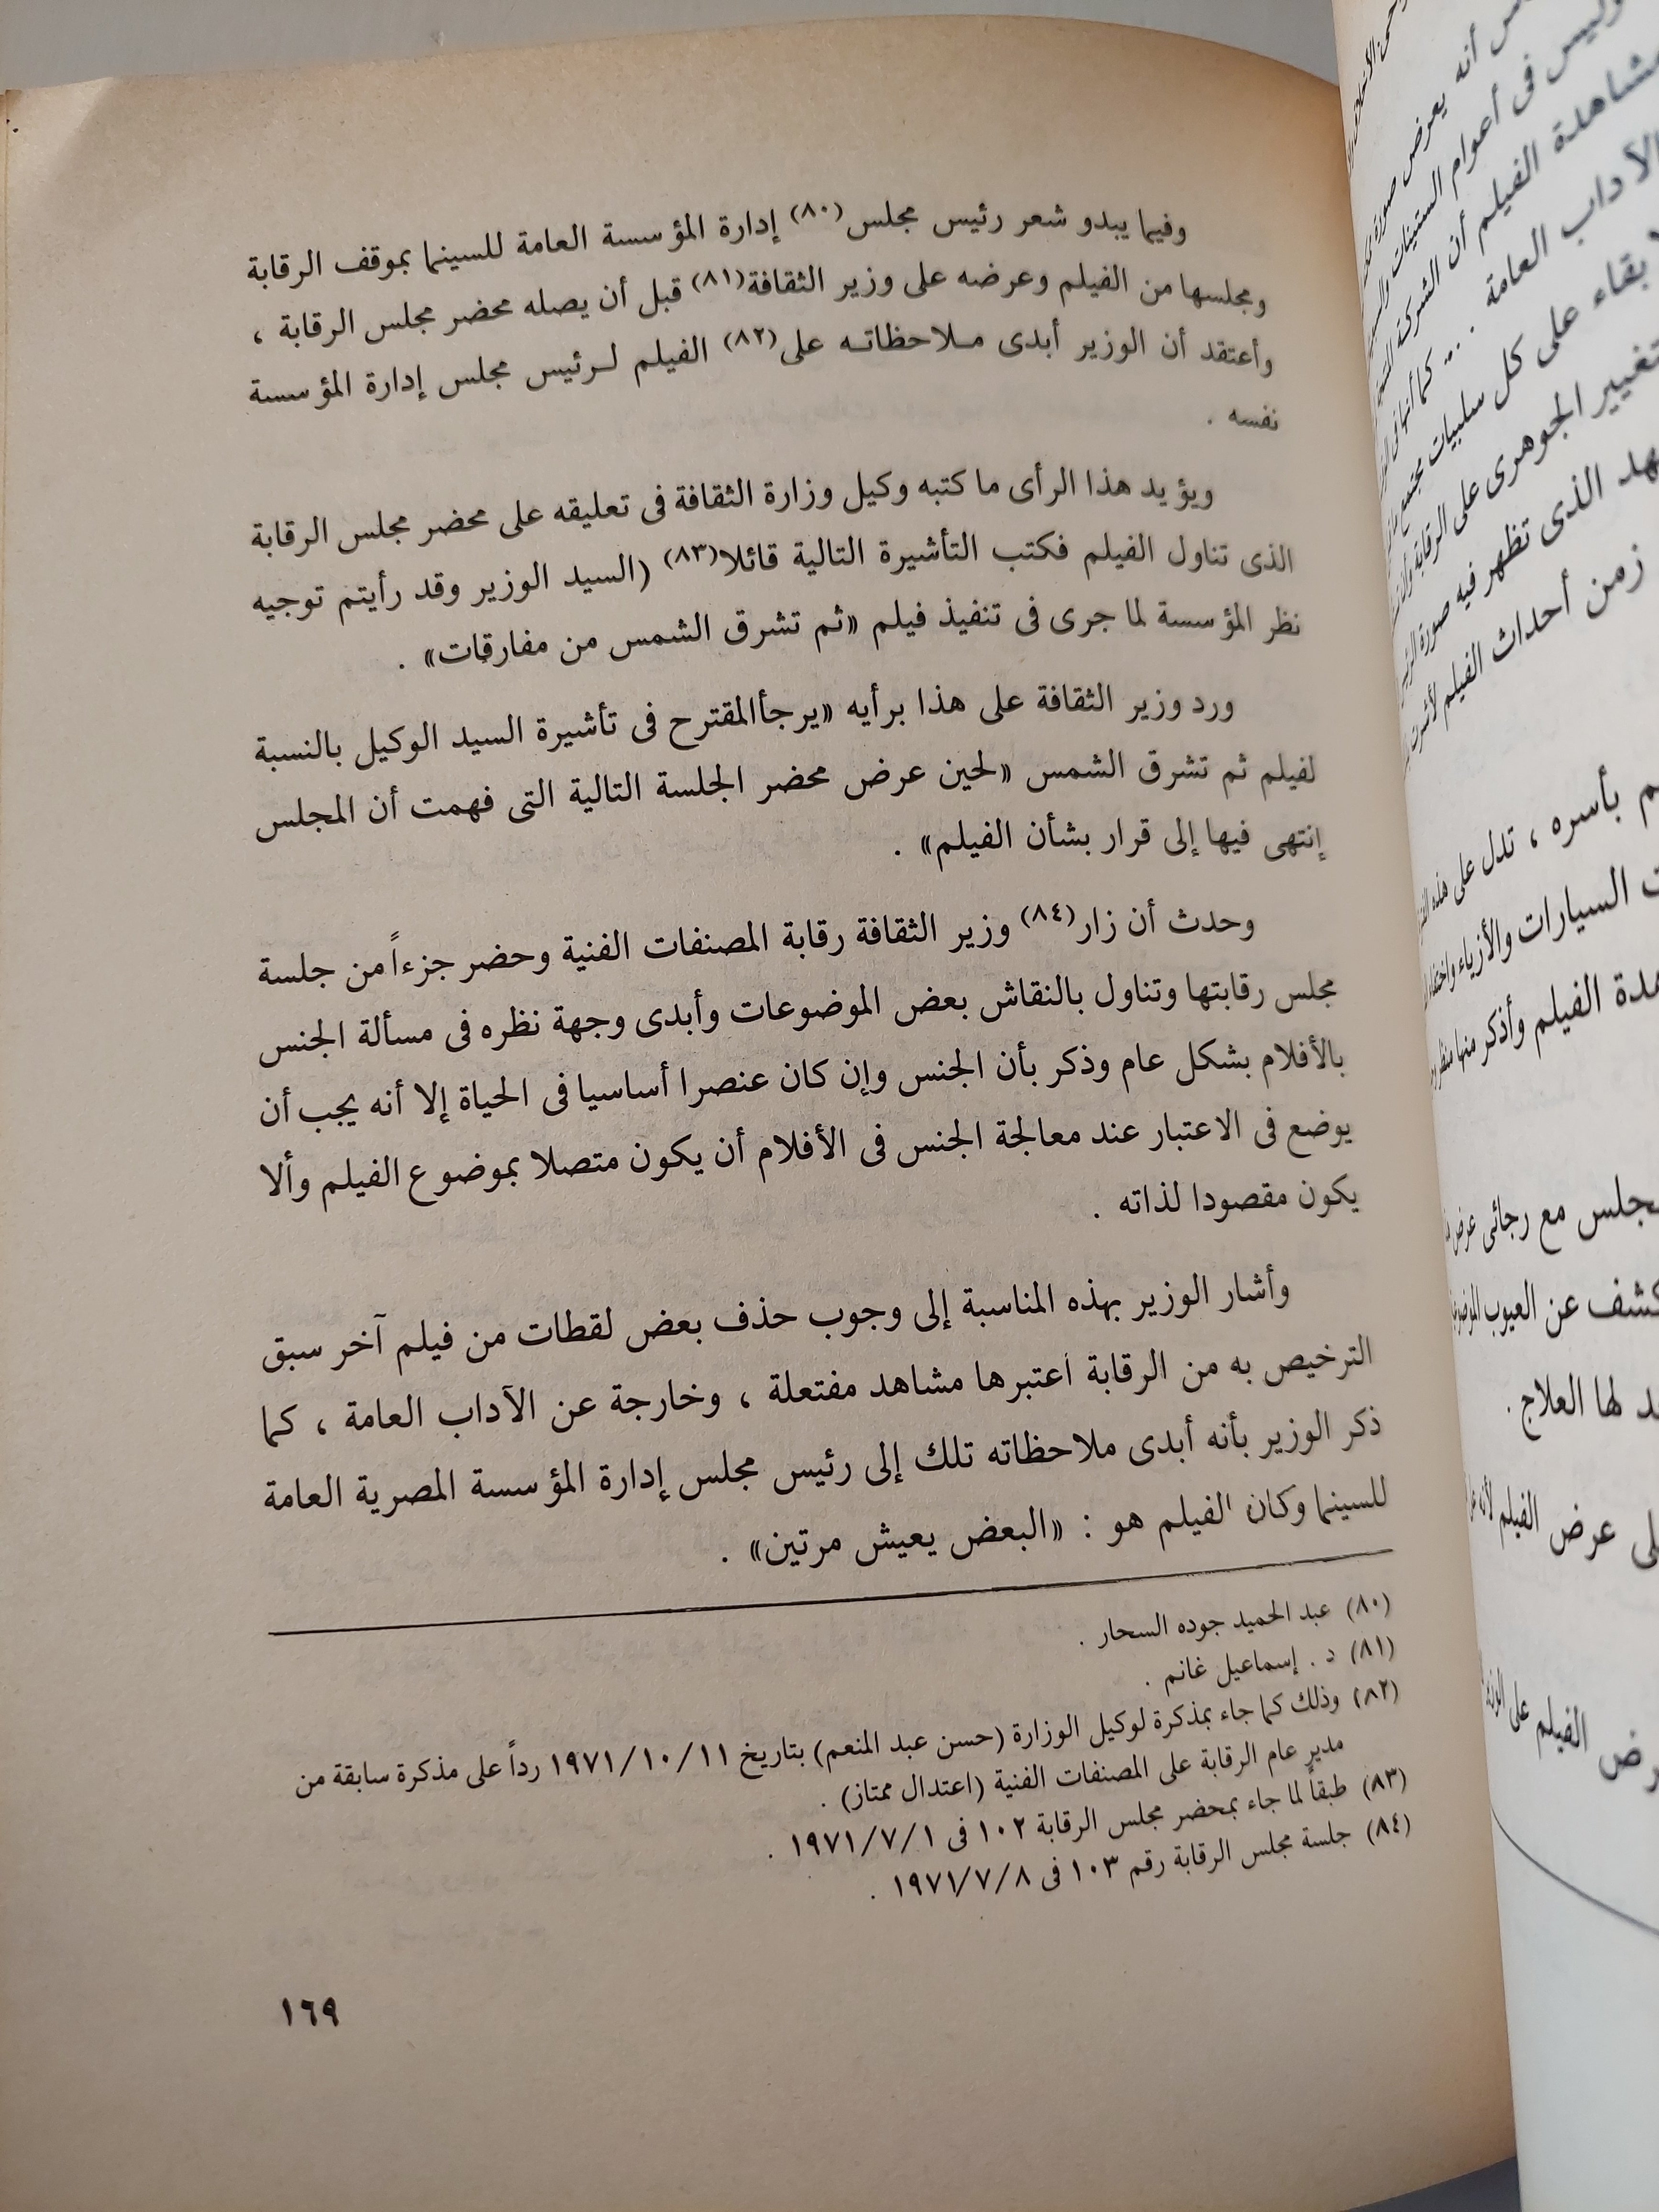 وفيما يبدو شعر رئيس مجلس(٨٠) إدارة المؤسسة العامة للسينما بموقف الرقابة
ومجلسها من الفيلم وعرضه على وزير الثقافة(٨١) قبل أن يصله محضر مجلس الرقابة ،
وأعتقد أن الوزير أبدى مـلاحظاتـه على(٨٢) الفيلم لـرئيس مجلس إدارة المؤسسة
نفسه .
ويؤيد هذا الرأى ما كتبه وكيل وزارة الثقافة فى تعليقه على محضر مجلس الرقابة
الذى تناول الفيلم فكتب التأشيرة التالية قائلا(٨٣) (السيد الوزير وقد رأيتم توجيه
نظر المؤسسة لما جرى فى تنفيذ فيلم «ثم تشرق الشمس من مفارقات» .
ورد وزير الثقافة على هذا برأيه «يرجأالمقترح فى تأشيرة السيد الوكيل بالنسبة
لفيلم ثم تشرق الشمس «لحين عرض محضر الجلسة التالية التى فهمت أن المجلس
إنتهى فيها إلى قرار بشأن الفيلم» .
وحدث أن زار(٨٤) وزير الثقافة رقابة المصنفات الفنية وحضر جزءاً من جلسة
مجلس رقابتها وتناول بالنقاش بعض الموضوعات وأبدى وجهة نظره فى مسألة الجنس
بالأفلام بشكل عام وذكر بأن الجنس وإن كان عنصرا أساسيا فى الحياة إلا أنه يجب أن
يوضع فى الاعتبار عند معالجة الجنس فى الأفلام أن يكون متصلا بموضوع الفيلم وألا
يكون مقصودا لذاته .
وأشار الوزير بهذه المناسبة إلى وجوب حذف بعض لقطات من فيلم آخر سبق
الترخيص به من الرقابة أعتبرها مشاهد مفتعلة ، وخارجة عن الآداب العامة ، كما
ذكر الوزير بأنه أبدى ملاحظاته تلك إلى رئيس مجلس إدارة المؤسسة المصرية العامة
للسينما وكان الفيلم هو : «البعض يعيش مرتين» .
(٨٠) عبد الحميد جوده السحار .
(٨١) د . إسماعيل غانم .
(٨٢) وذلك كما جاء بمذكرة لوكيل الوزارة (حسن عبد المنعم) بتاريخ ١٩٧١/١٠/١١ رداً على مذكرة سابقة من
مدير عام الرقابة على المصنفات الفنية (اعتدال ممتاز) .
(٨٣) طبقاً لما جاء بمحضر مجلس الرقابة ١٠٢ فى ١٩٧١/٧/١ .
(٨٤) جلسة مجلس الرقابة رقم ١٠٣ فى ١٩٧١/٧/٨ .
١٦٩
أنه يعرض صورة
وليس فى أعوام الستينات
مشاهدة الفيلم أن الشركة
الآداب العامة ... كما أنها
بقاء على كل سلبيات مجتمع
تغيير الجوهرى على الرقابة
الذى تظهر فيه صورة
زمن أحداث الفيلم
بأسره ، تدل على هذه
السيارات والأزياء
الفيلم وأذكر منها
مع رجائى عرض
كشف عن العيوب
لها العلاج .
عرض الفيلم لأنه
الفيلم على